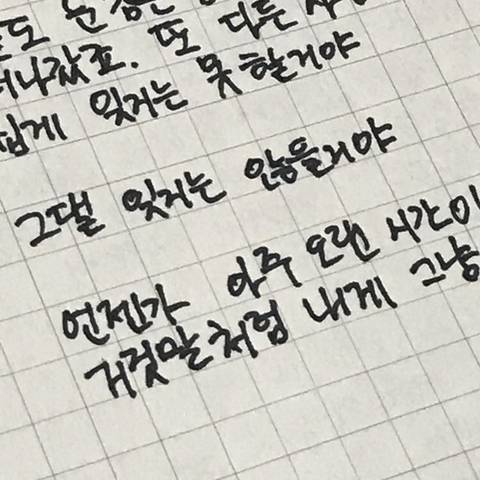 떠나갔죠. 또 다른 사
쉽게 잊지는 못 할거야
그댈 잊지는 않을거야
언젠가 아주 오랜 시간이
거짓말처럼 내게 그냥